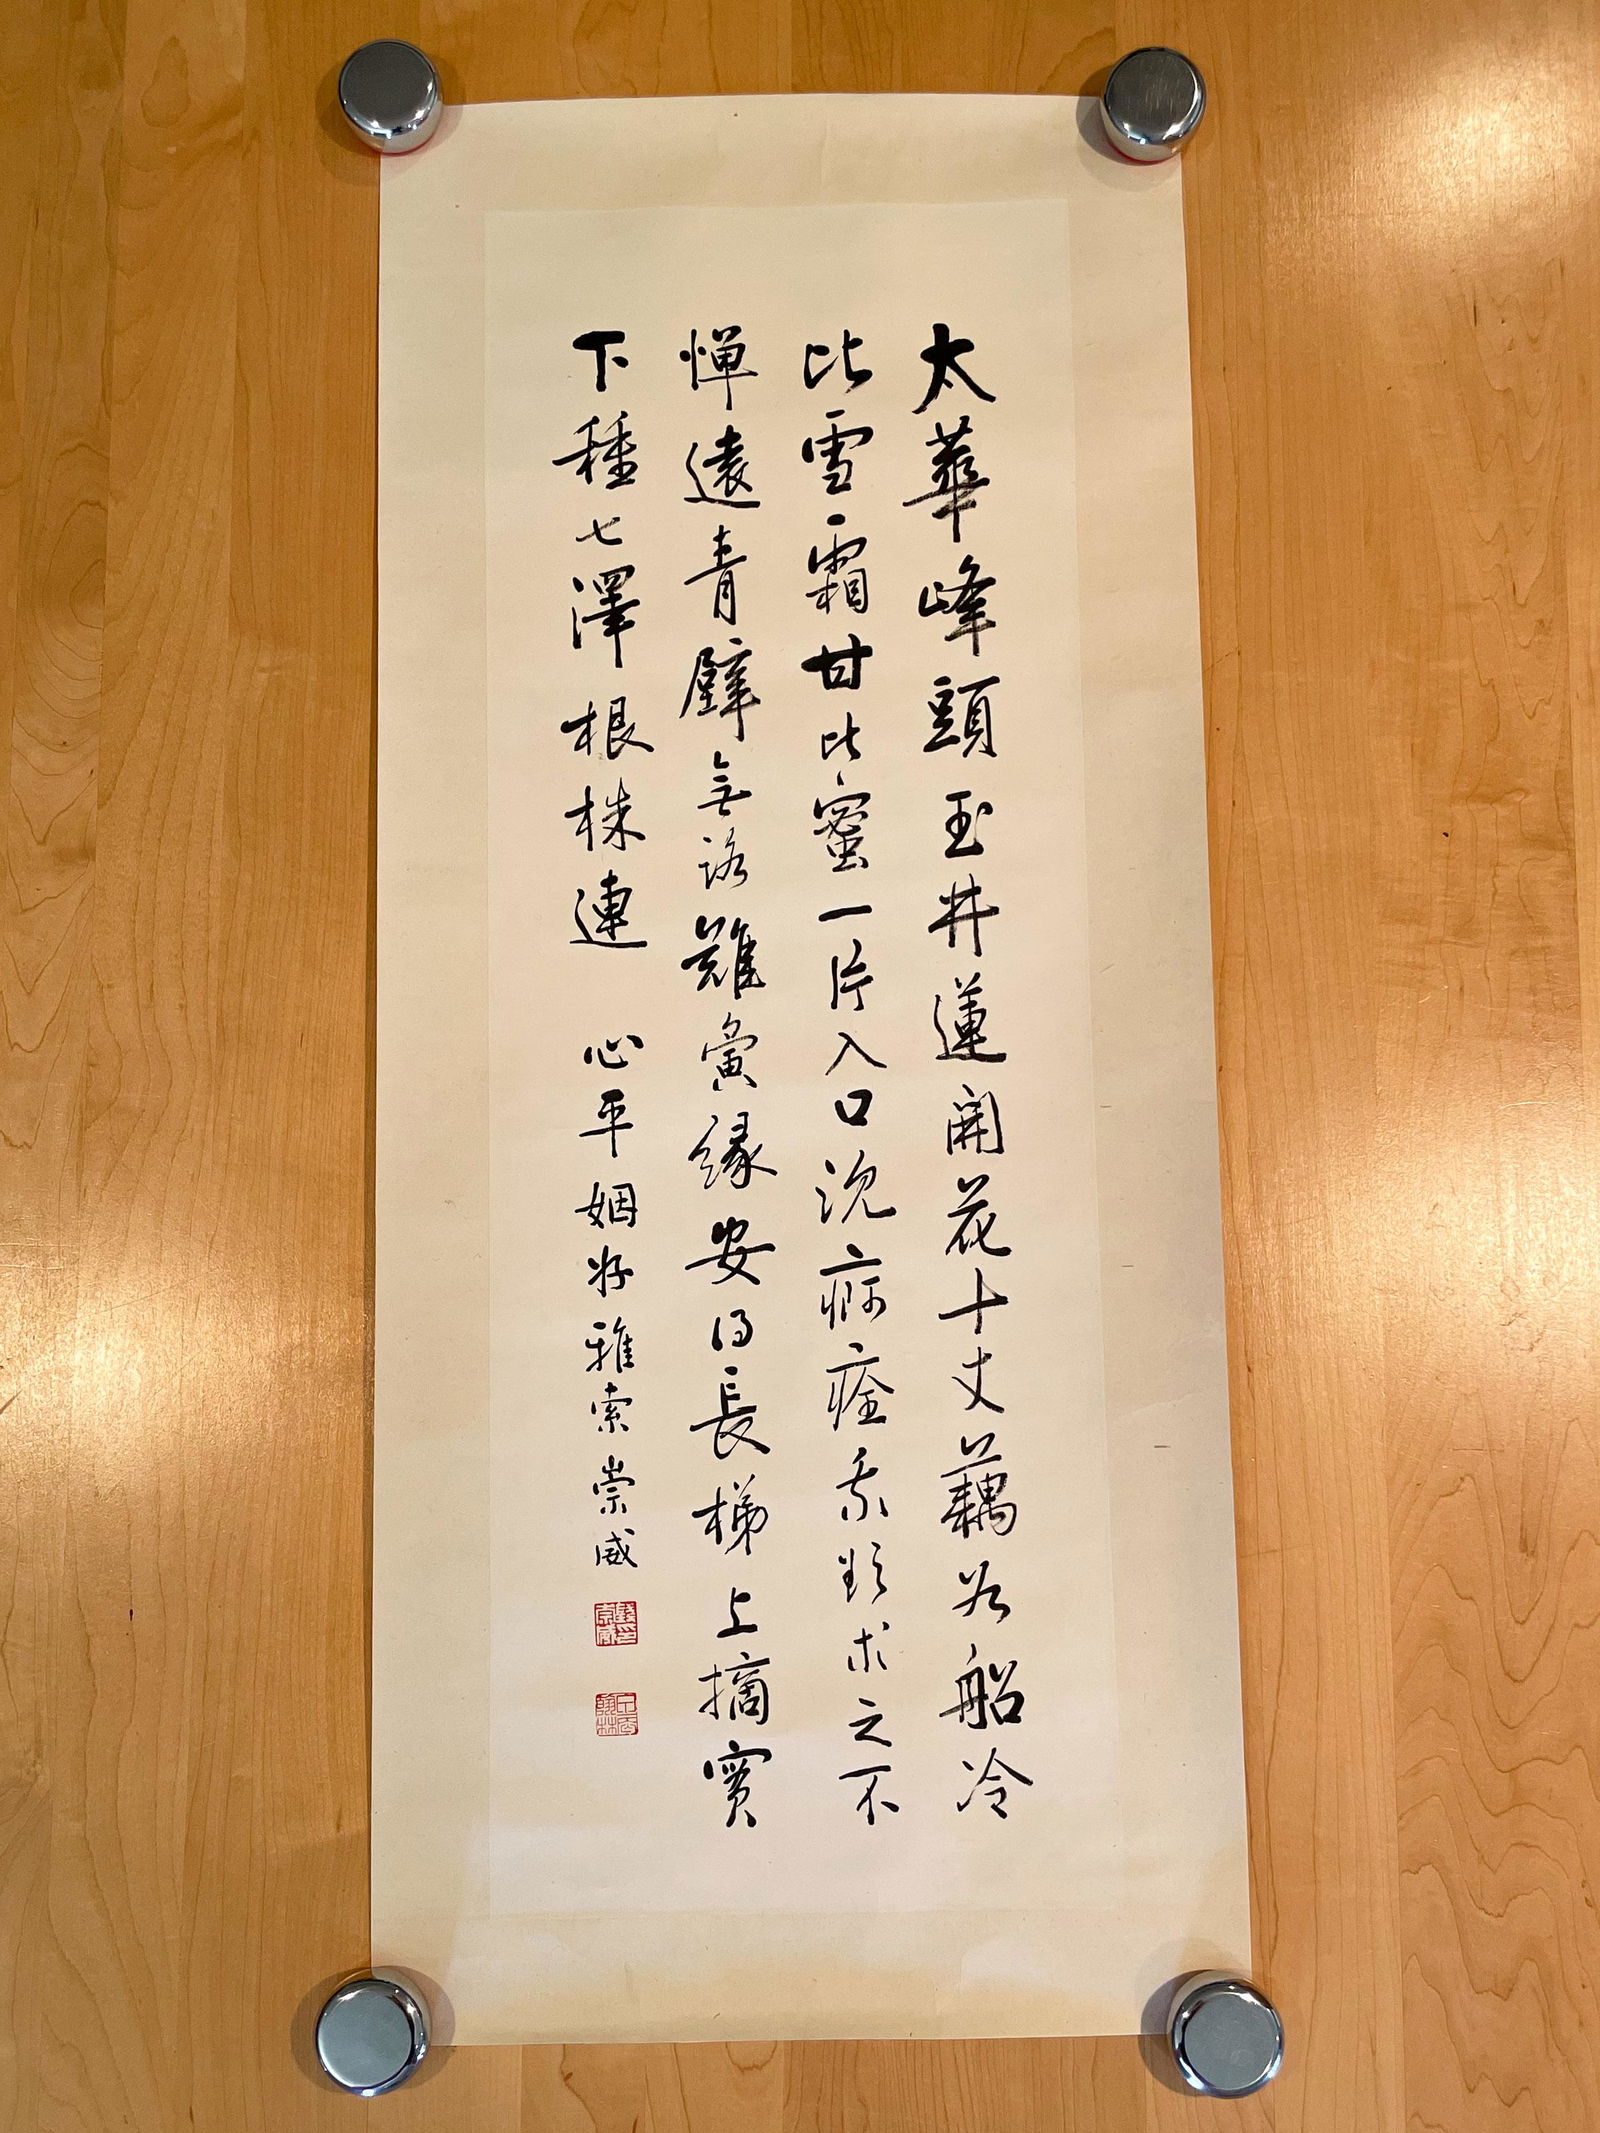 太華峰頭玉井蓮開花十丈藕若船冷
比雪霜甘比蜜一片入口沈痾痊我欲求之不
憚遠青壁無路難夤緣安得長梯上摘實
下種七澤根株連 心平姻好雅索 崇威
錢崇威印